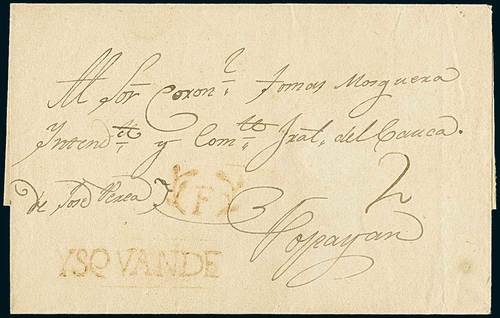 Al Sor. Coronl. Tomas Mosquera
Yntendte. y Comte. Jral. del Cauca.
2
de José Perea
F
Popayan
YSQVANDE